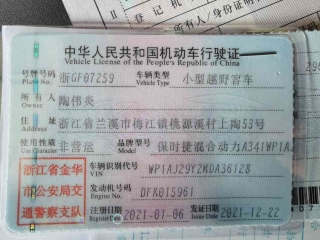 登记机
所有人/身份证明
中华人民共和国机动车行驶证
Vehicle License of the People's Republic of China
号牌号码 浙GF07Z59 车辆类型 小型越野客车
Plate No. Vehicle Type
所有人 陶伟炎
Owner
住址 浙江省兰溪市梅江镇桃源溪村上陶53号
Address
使用性质 非营运 品牌型号 保时捷混合动力A341WP1AJ
Use Character Model
浙江省金华
市公安局交
通警察支队
车辆识别代号 WP1AJ29Y2KDA36128
VIN
发动机号码 DFK015961
Engine No.
注册日期 2021-01-06 发证日期 2021-12-22
Register Date Issue Date